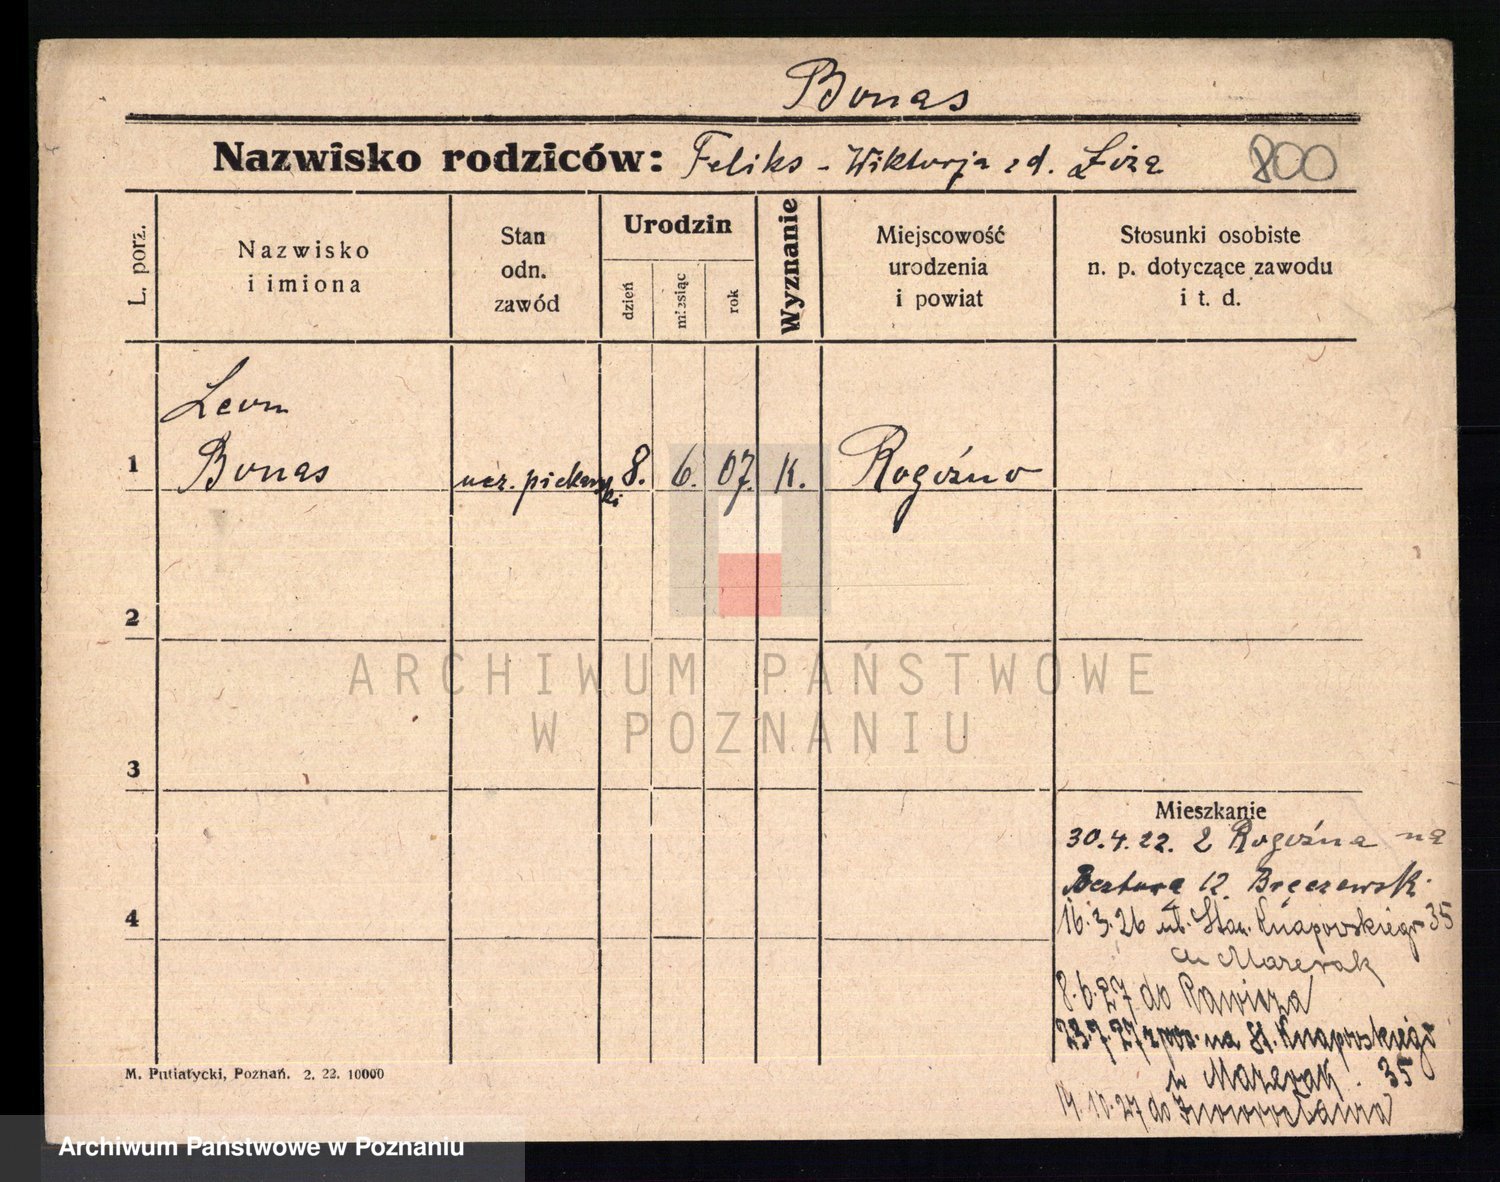 Bonas
Nazwisko rodziców: Feliks - Wiktorja z d. Łoza
800
L. porz.
Nazwisko
i imiona
Stan
odn.
zawód
Urodzin
dzień
miesiąc
rok
Wyznanie
Miejscowość
urodzenia
i powiat
Stosunki osobiste
n. p. dotyczące zawodu
i t. d.
Leon
1 Bonas ucz. piekarski 8. 6. 07. K. Rogoźno
2
3
4
ARCHIWUM PAŃSTWOWE
W POZNANIU
Mieszkanie
30.4.22. z Rogoźna na
12 Bręczewsk.
16.3.26 ul. Stan. Knapowskiego 35
u Marerak
8.6.27 do Rawicza
23.7.27 na St. Knapowskiego
u Marerak. 35
14.10.27 do Inowrocławia
M. Putiatycki, Poznań. 2. 22. 10000
Archiwum Państwowe w Poznaniu